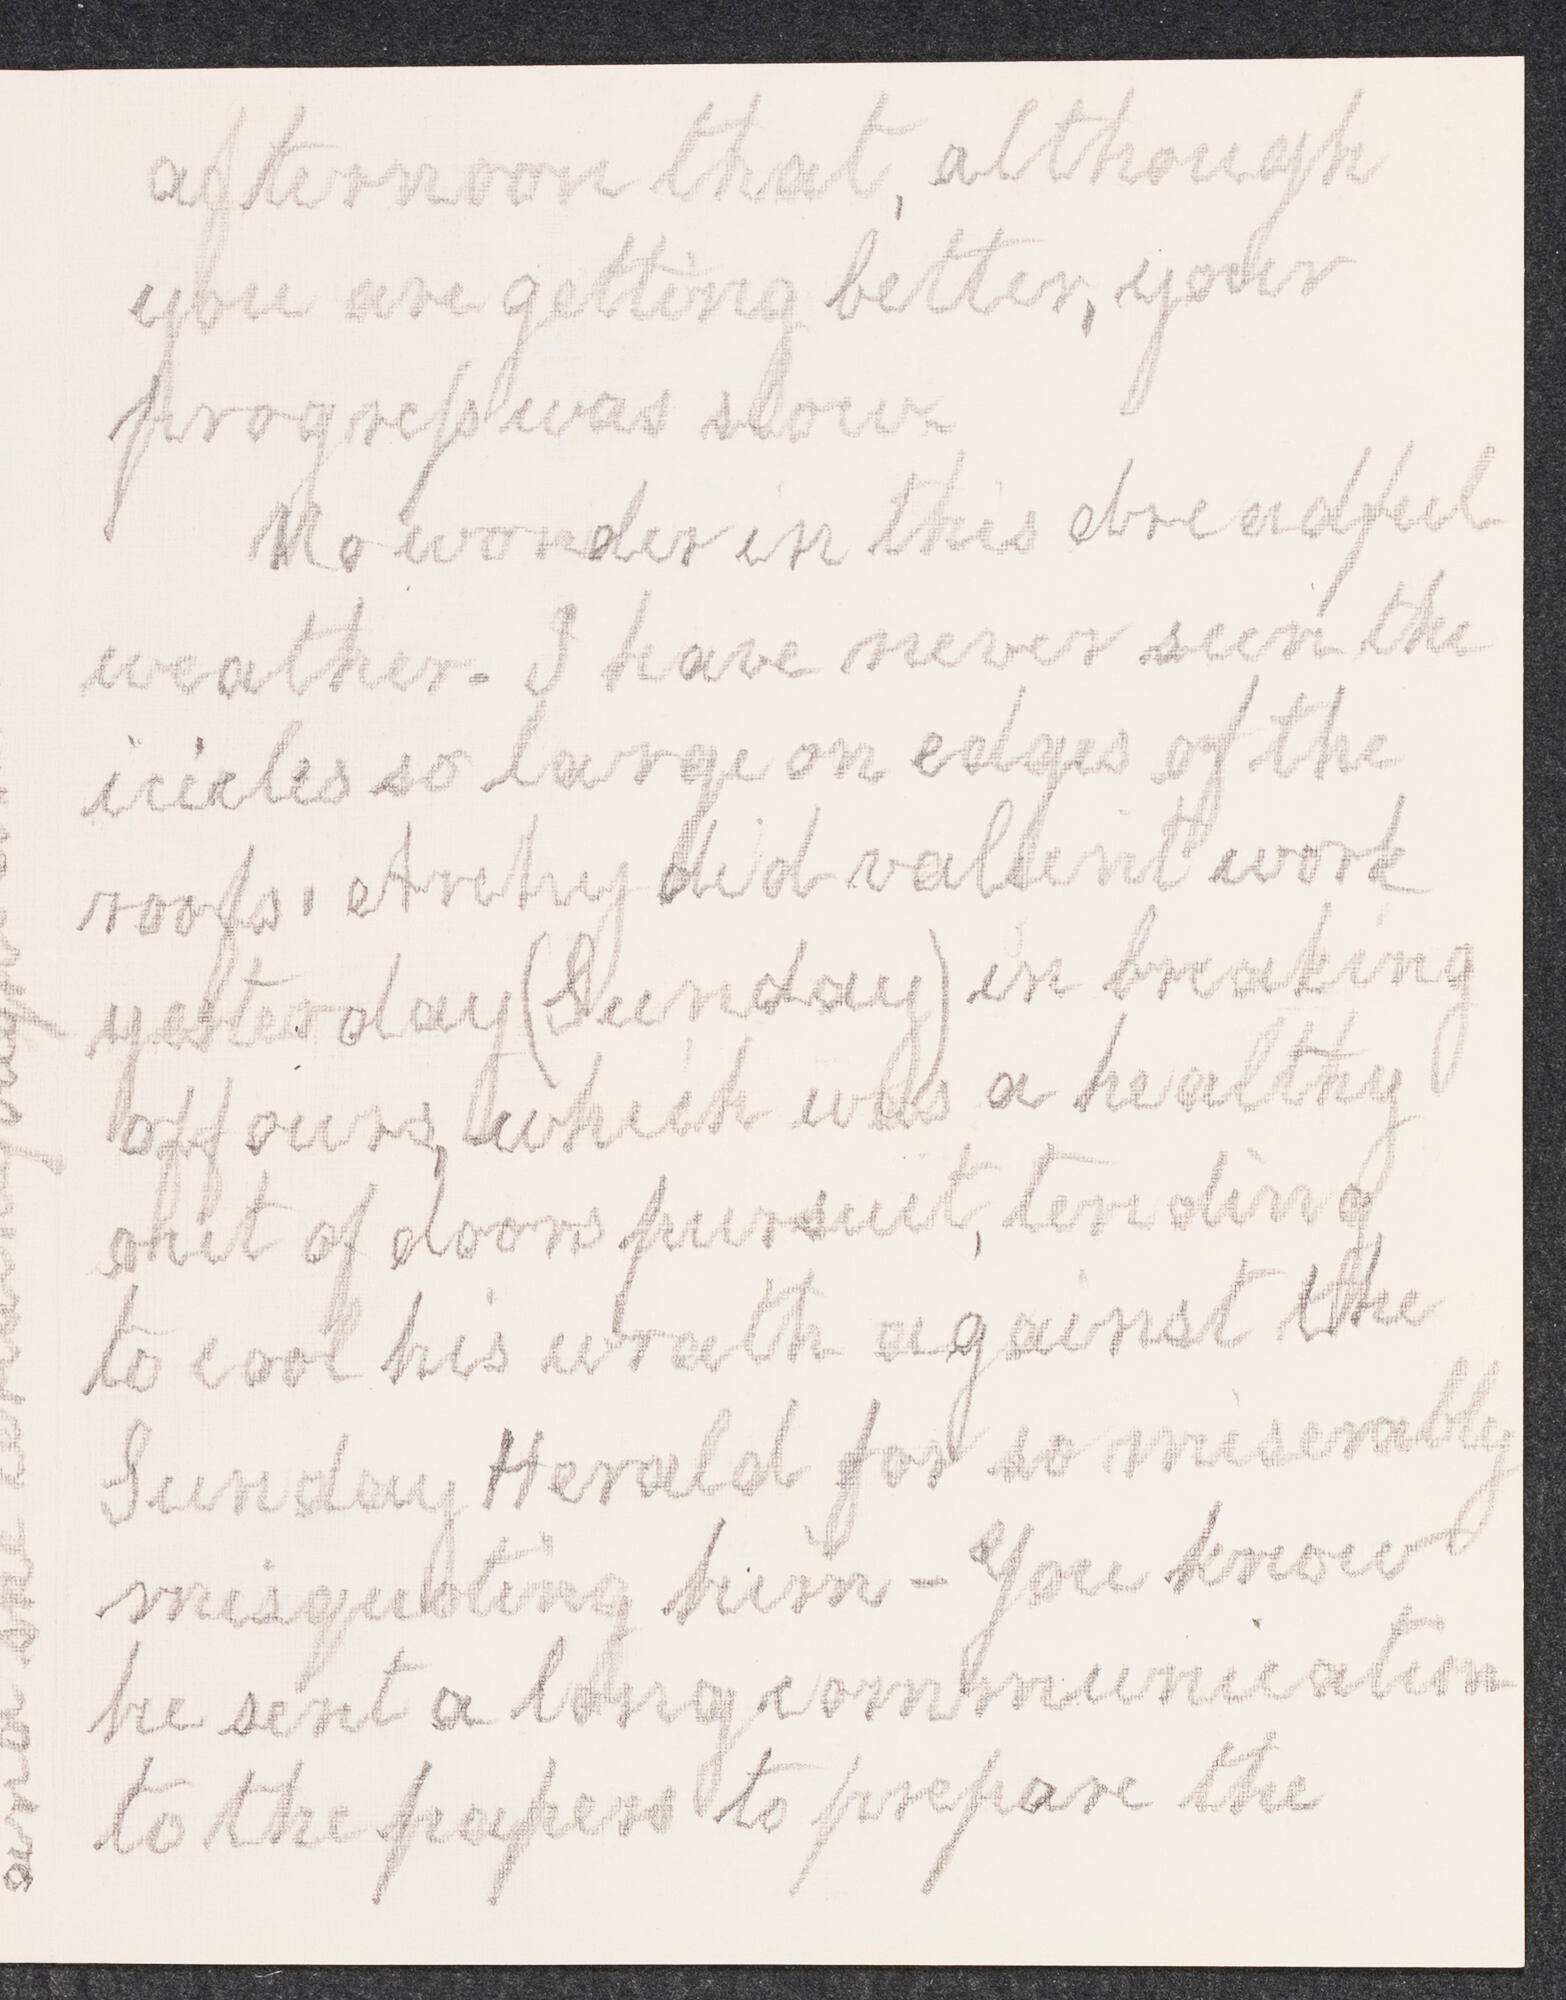 afternoon that, although
you are getting better, your
progress was slow.
No wonder in this dreadful
weather. I have never seen the
icicles so large on edges of the
roofs. Archy did valient work
yesterday (Sunday) in breaking
off ours, which was a healthy
out of doors pursuit, tending
to cool his wrath against the
Sunday Herald for so miserably
misquoting him – You know
he sent a long communication
to the papers to prepare the